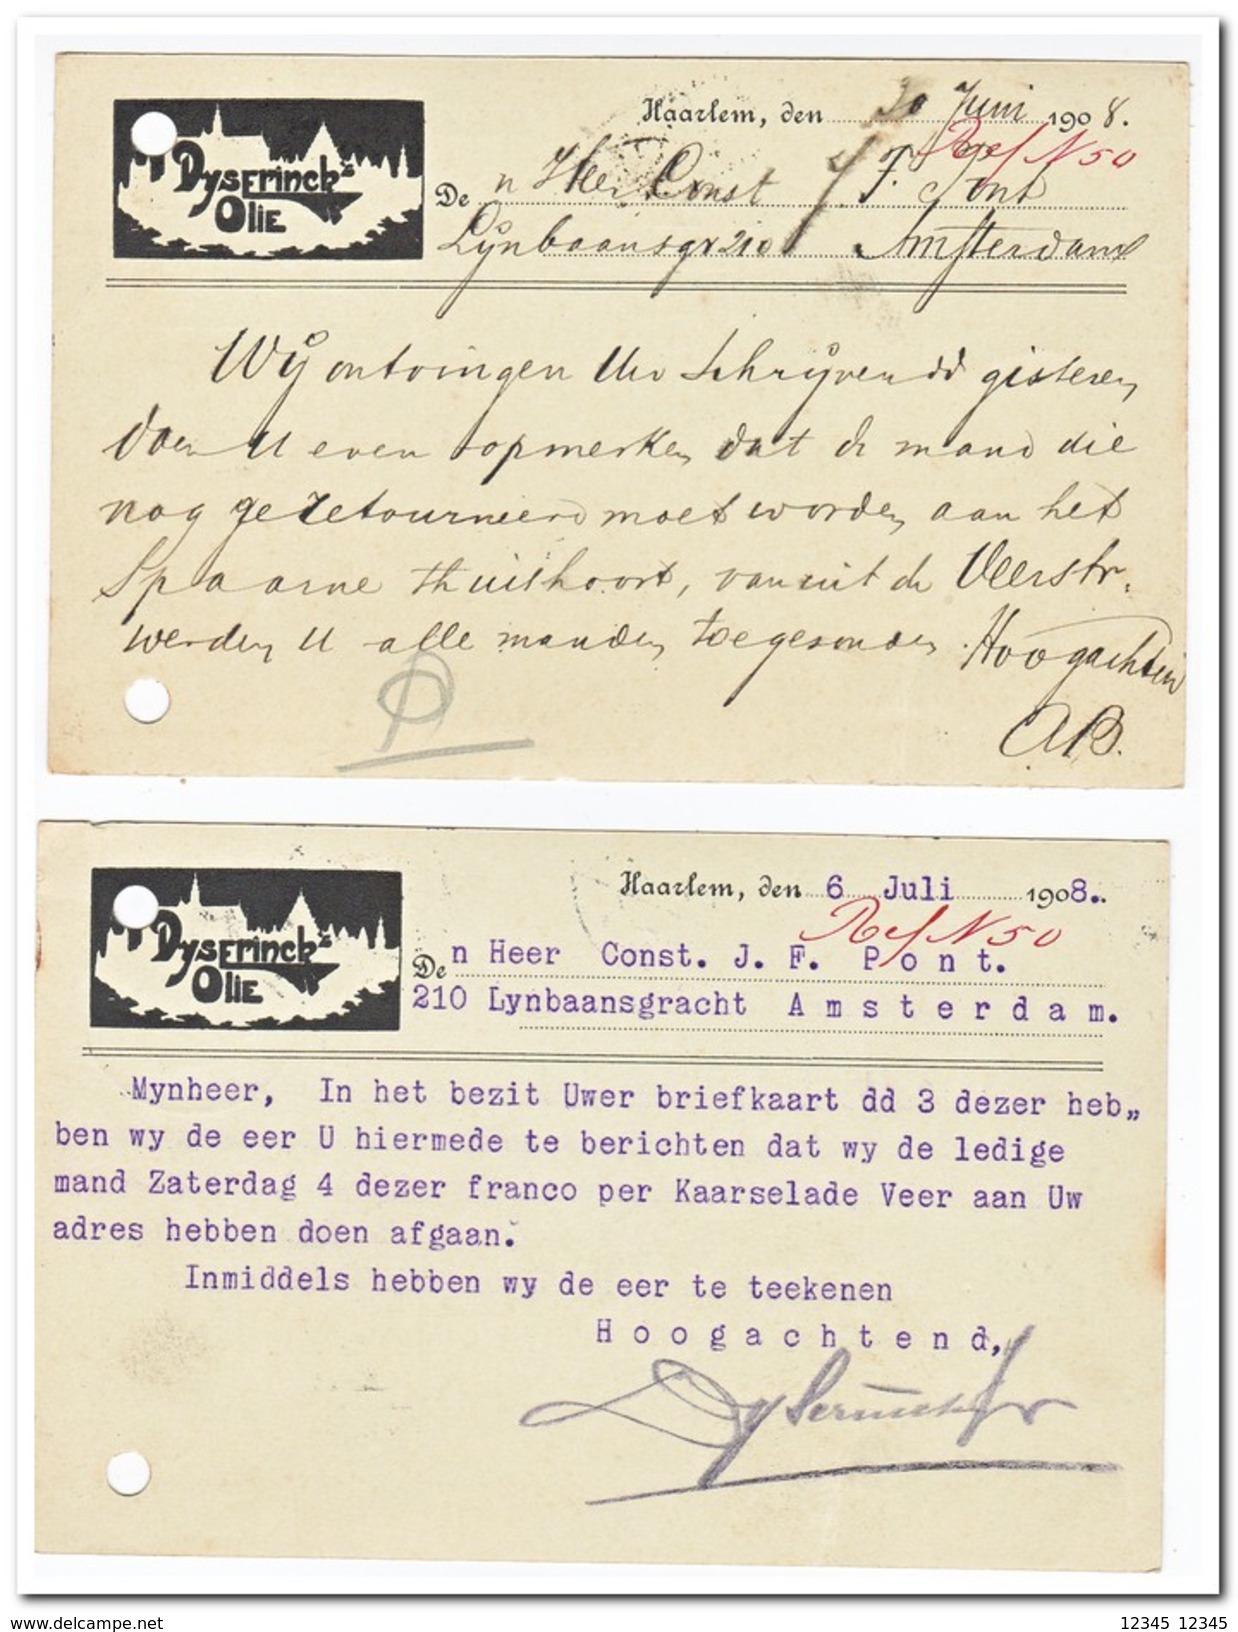 Haarlem, den 30 Juni 1908.
Ref N 50
Dyserinck's
Olie
Den Heer Const J. F. Pont
Lynbaansgr 210 Amsterdam
Wij ontvingen Uw schrijven dd gisteren,
doen U even opmerken dat de mand die
nog geretourneerd moet worden aan het
Spaarne thuishoort, vanuit de Veerstr.
werden U alle manden toegezonden. Hoogachtend
AB.
Haarlem, den 6 Juli 1908..
Ref N 50
Dyserinck's
Olie
Den Heer Const. J. F. Pont.
210 Lynbaansgracht Amsterdam.
Mynheer, In het bezit Uwer briefkaart dd 3 dezer heb„
ben wy de eer U hiermede te berichten dat wy de ledige
mand Zaterdag 4 dezer franco per Kaarselade Veer aan Uw
adres hebben doen afgaan.
Inmiddels hebben wy de eer te teekenen
Hoogachtend,
www.delcampe.net
12345 12345